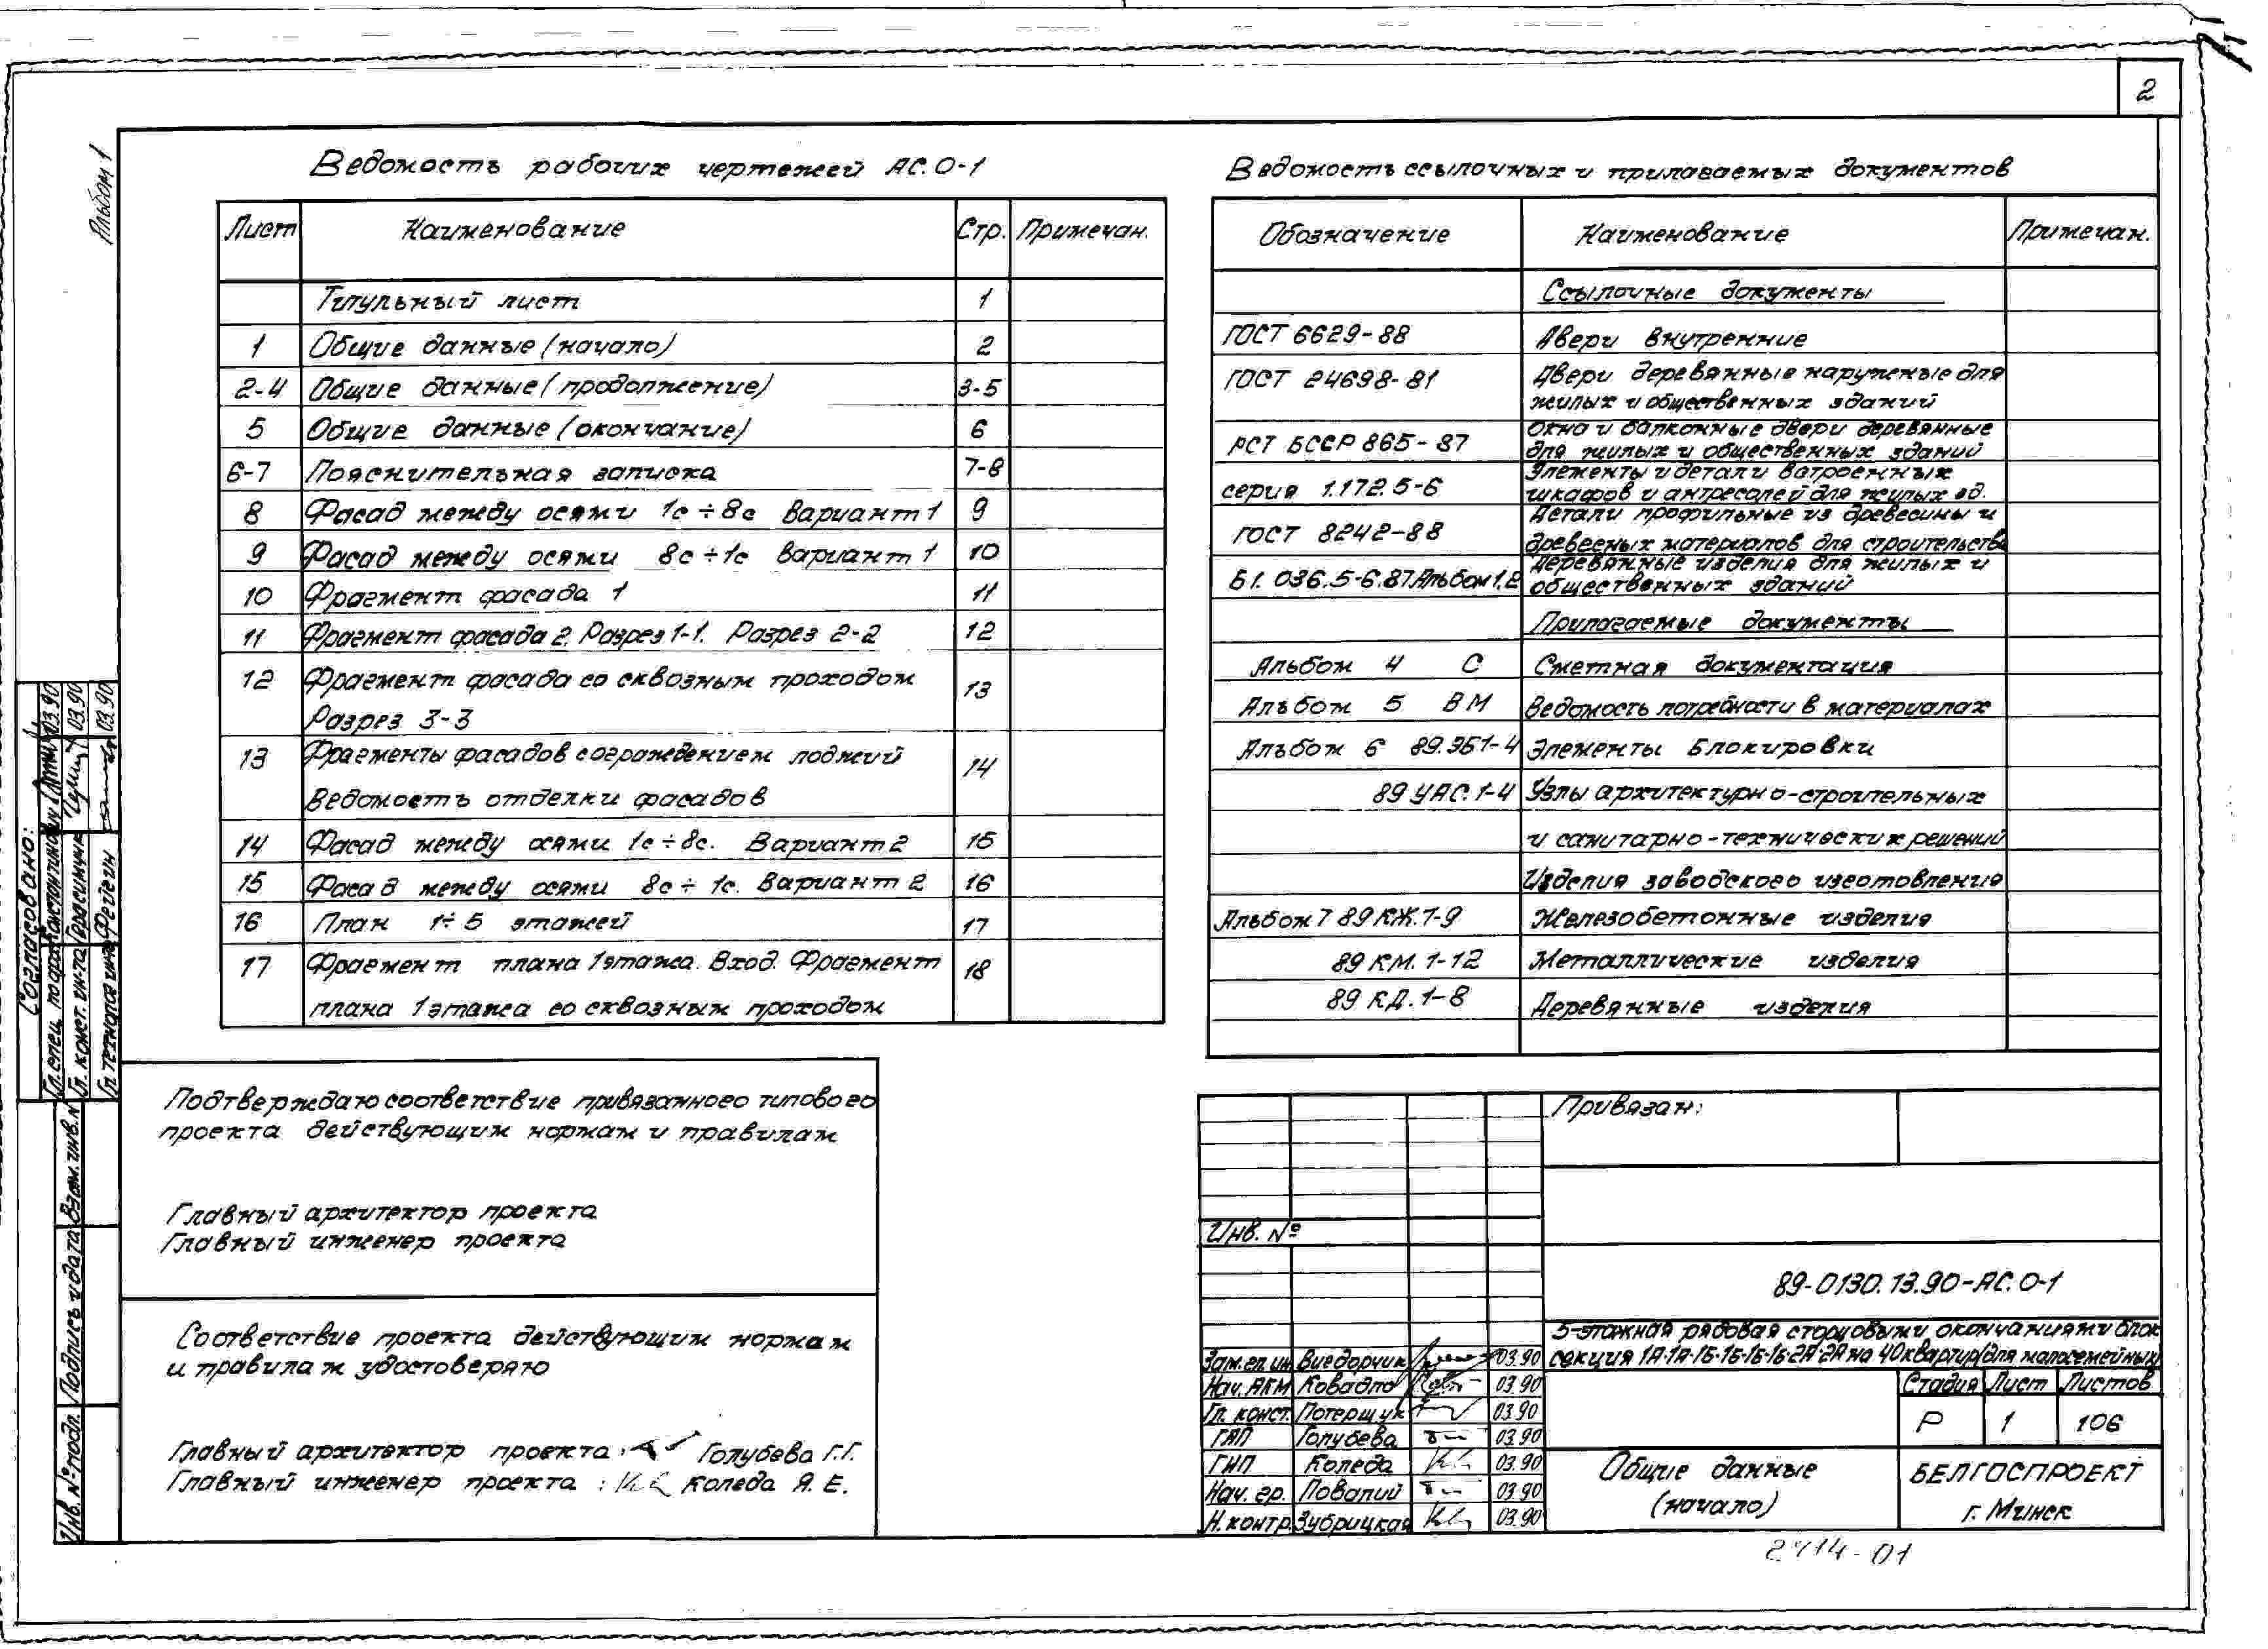 2
Альбом 1
Ведомость рабочих чертежей АС.0-1
Лист Наименование Стр. Примечан.
Титульный лист 1
1 Общие данные (начало) 2
2-4 Общие данные (продолжение) 3-5
5 Общие данные (окончание) 6
6-7 Пояснительная записка 7-8
8 Фасад между осями 1с÷8с Вариант 1 9
9 Фасад между осями 8с÷1с Вариант 1 10
10 Фрагмент фасада 1 11
11 Фрагмент фасада 2. Разрез 1-1. Разрез 2-2 12
12 Фрагмент фасада со сквозным проходом 13
Разрез 3-3
13 Фрагменты фасадов с ограждением лоджий 14
Ведомость отделки фасадов
14 Фасад между осями 1с÷8с. Вариант 2 15
15 Фасад между осями 8с÷1с. Вариант 2 16
16 План 1÷5 этажей 17
17 Фрагмент плана 1 этажа. Вход. Фрагмент 18
плана 1 этажа со сквозным проходом
Ведомость ссылочных и прилагаемых документов
Обозначение Наименование Примечан.
Ссылочные документы
ГОСТ 6629-88 Двери внутренние
ГОСТ 24698-81 Двери деревянные наружные для
жилых и общественных зданий
РСТ БССР 865-87 Окна и балконные двери деревянные
для жилых и общественных зданий
серия 1.172.5-6 Элементы и детали встроенных
шкафов и антресолей для жилых зд.
ГОСТ 8242-88 Детали профильные из древесины и
древесных материалов для строительства
Б1.036.5-6.87 Альбом 1,2 Деревянные изделия для жилых и
общественных зданий
Прилагаемые документы
Альбом 4 С Сметная документация
Альбом 5 ВМ Ведомость потребности в материалах
Альбом 6 89.ЭБ1-4 Элементы блокировки
89 УАС.1-4 Узлы архитектурно-строительных
и санитарно-технических решений
Изделия заводского изготовления
Альбом 7 89 КЖ.1-9 Железобетонные изделия
89 КМ.1-12 Металлические изделия
89 КД.1-8 Деревянные изделия
Согласовано:
Гл. спец. по арх. 03.90
Гл. конст. ин-та Герасимчик 03.90
Гл. технолог ин-та Фегегин 03.90
Взам. инв. №
Подпись и дата
Инв. № подл.
Подтверждаю соответствие привязанного типового
проекта действующим нормам и правилам
Главный архитектор проекта
Главный инженер проекта
Соответствие проекта действующим нормам
и правилам удостоверяю
Главный архитектор проекта: Голубева Г.Г.
Главный инженер проекта: Коледа Я.Е.
Привязан:
Инв. №
89-0130.13.90-АС.0-1
5-этажная рядовая с торцовыми окончаниями блок
секция 1А-1А-1Б-1Б-1Б-1Б-2А-2А на 40 квартир (для малосемейных)
Зам. гл. ин. Внедорчик 03.90
Нач. АКМ Ковадло 03.90
Гл. конст. Потерщук 03.90
ГАП Голубева 03.90
ГИП Коледа 03.90
Нач. гр. Ловалий 03.90
Н. контр. Зубрицкая 03.90
Стадия Лист Листов
Р 1 106
Общие данные
(начало)
БЕЛГОСПРОЕКТ
г. Минск
2414-01